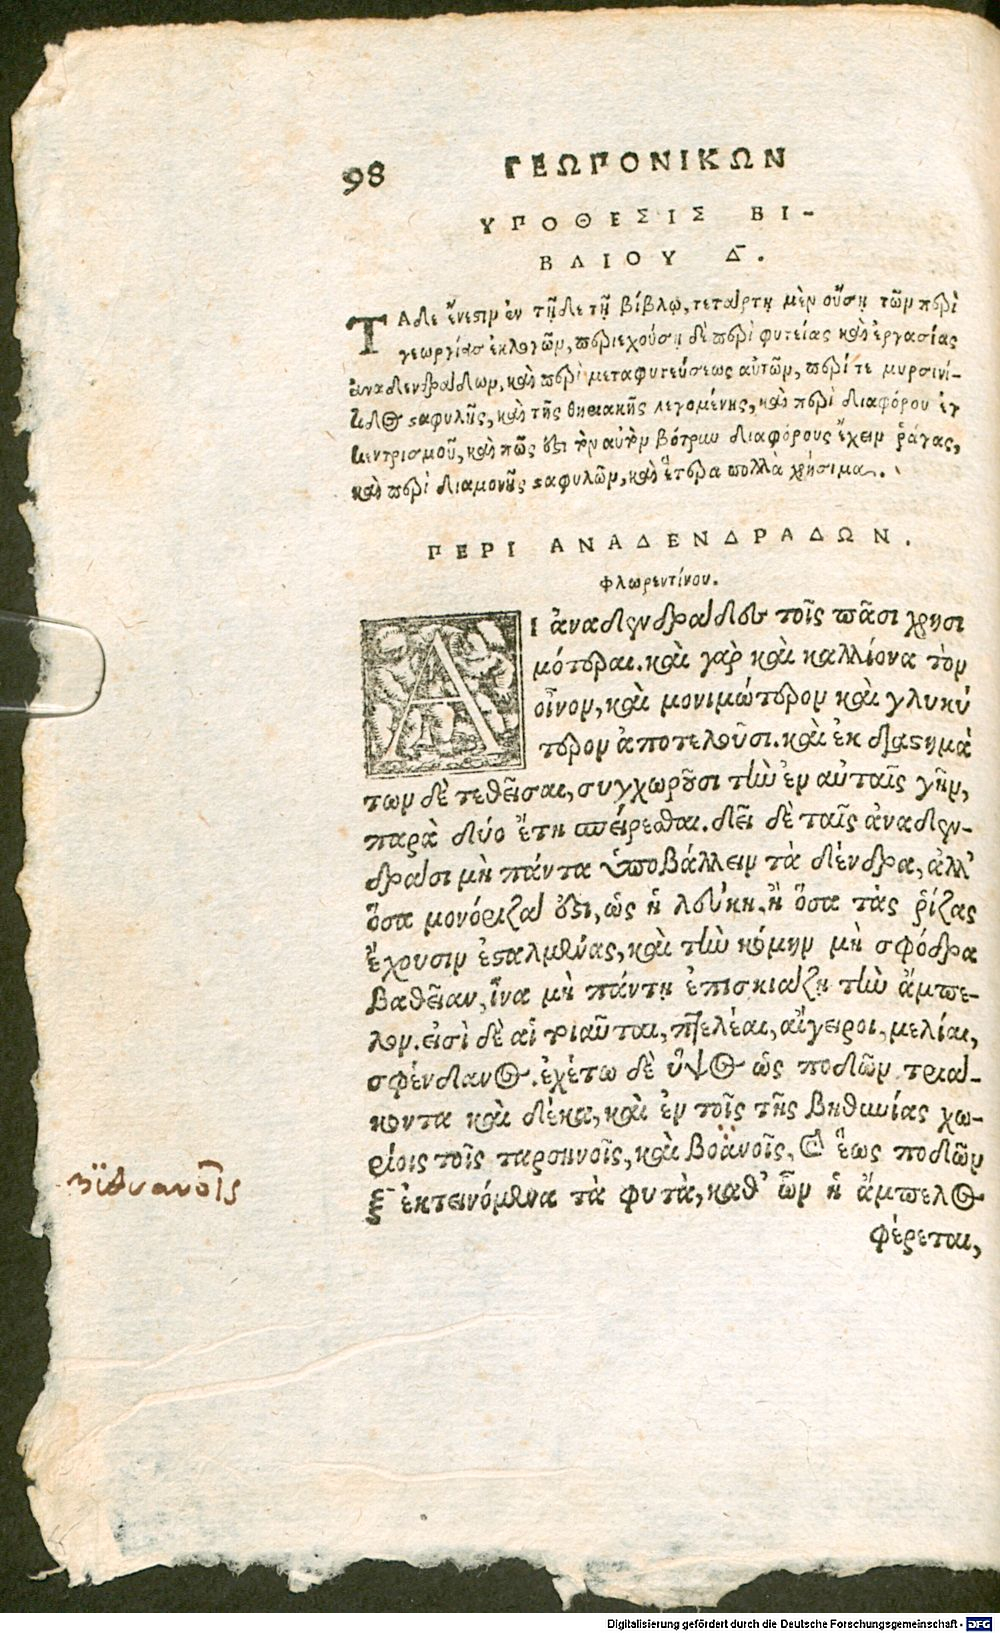 98 ΓΕΩΠΟΝΙΚΩΝ
ΥΠΟΘΕΣΙΣ ΒΙ-
ΒΛΙΟΥ Δ̄.
ΤΑδε ἔνεστιν ἐν τῇδε τῇ βίβλῳ, τετάρτῃ μὲν οὔσῃ τῶν περὶ
γεωργίας ἐκλογῶν, περιεχούσῃ δὲ περὶ φυτείας καὶ ἐργασίας
ἀναδενδράδων, καὶ περὶ μεταφυτεύσεως αὐτῶν, περί τε μυρσινί-
τιδος σταφυλῆς, καὶ τῆς θηριακῆς λεγομένης, καὶ περὶ διαφόρου ἐγ
κεντρισμοῦ, καὶ πῶς ἔστι τὸν αὐτὸν βότρυν διαφόρους ἔχειν ῥάγας,
καὶ περὶ διαμονῆς σταφυλῶν, καὶ ἕτερα πολλὰ χρήσιμα.
ΠΕΡΙ ΑΝΑΔΕΝΔΡΑΔΩΝ.
Φλωρεντίνου.
ΑΙ ἀναδενδράδες τοῖς πᾶσι χρησι
μότεραι. καὶ γὰρ καὶ καλλίονα τὸν
οἶνον, καὶ μονιμώτερον καὶ γλυκύ
τερον ἀποτελοῦσι. καὶ ἐκ διαστημά
των δὲ τεθεῖσαι, συγχωροῦσι τὴν ἐν αὐταῖς γῆν,
παρὰ δύο ἔτη σπείρεσθαι. δεῖ δὲ ταῖς ἀναδεν-
δράσι μὴ πάντα ὑποβάλλειν τὰ δένδρα, ἀλλ’
ὅσα μονόριζά ἐστι, ὡς ἡ λεύκη. ἢ ὅσα τὰς ῥίζας
ἔχουσιν ἐσταλμένας, καὶ τὴν κόμην μὴ σφόδρα
βαθεῖαν, ἵνα μὴ πάντῃ ἐπισκιάζῃ τὴν ἄμπε-
λον. εἰσὶ δὲ αἱ τοιαῦται, πτελέαι, αἴγειροι, μελίαι,
σφένδανος. ἐχέτω δὲ ὕψος ὡς ποδῶν τριά-
κοντα καὶ δέκα, καὶ ἐν τοῖς τῆς Βηθυνίας χω-
ρίοις τοῖς ταρσηνοῖς, καὶ βοάνοῖς, καὶ ἕως ποδῶν
ξ̄ ἐκτεινόμενα τὰ φυτὰ, καθ’ ὧν ἡ ἄμπελος
φέρεται,
βϊθυανοῖς
Digitalisierung gefördert durch die Deutsche Forschungsgemeinschaft - DFG